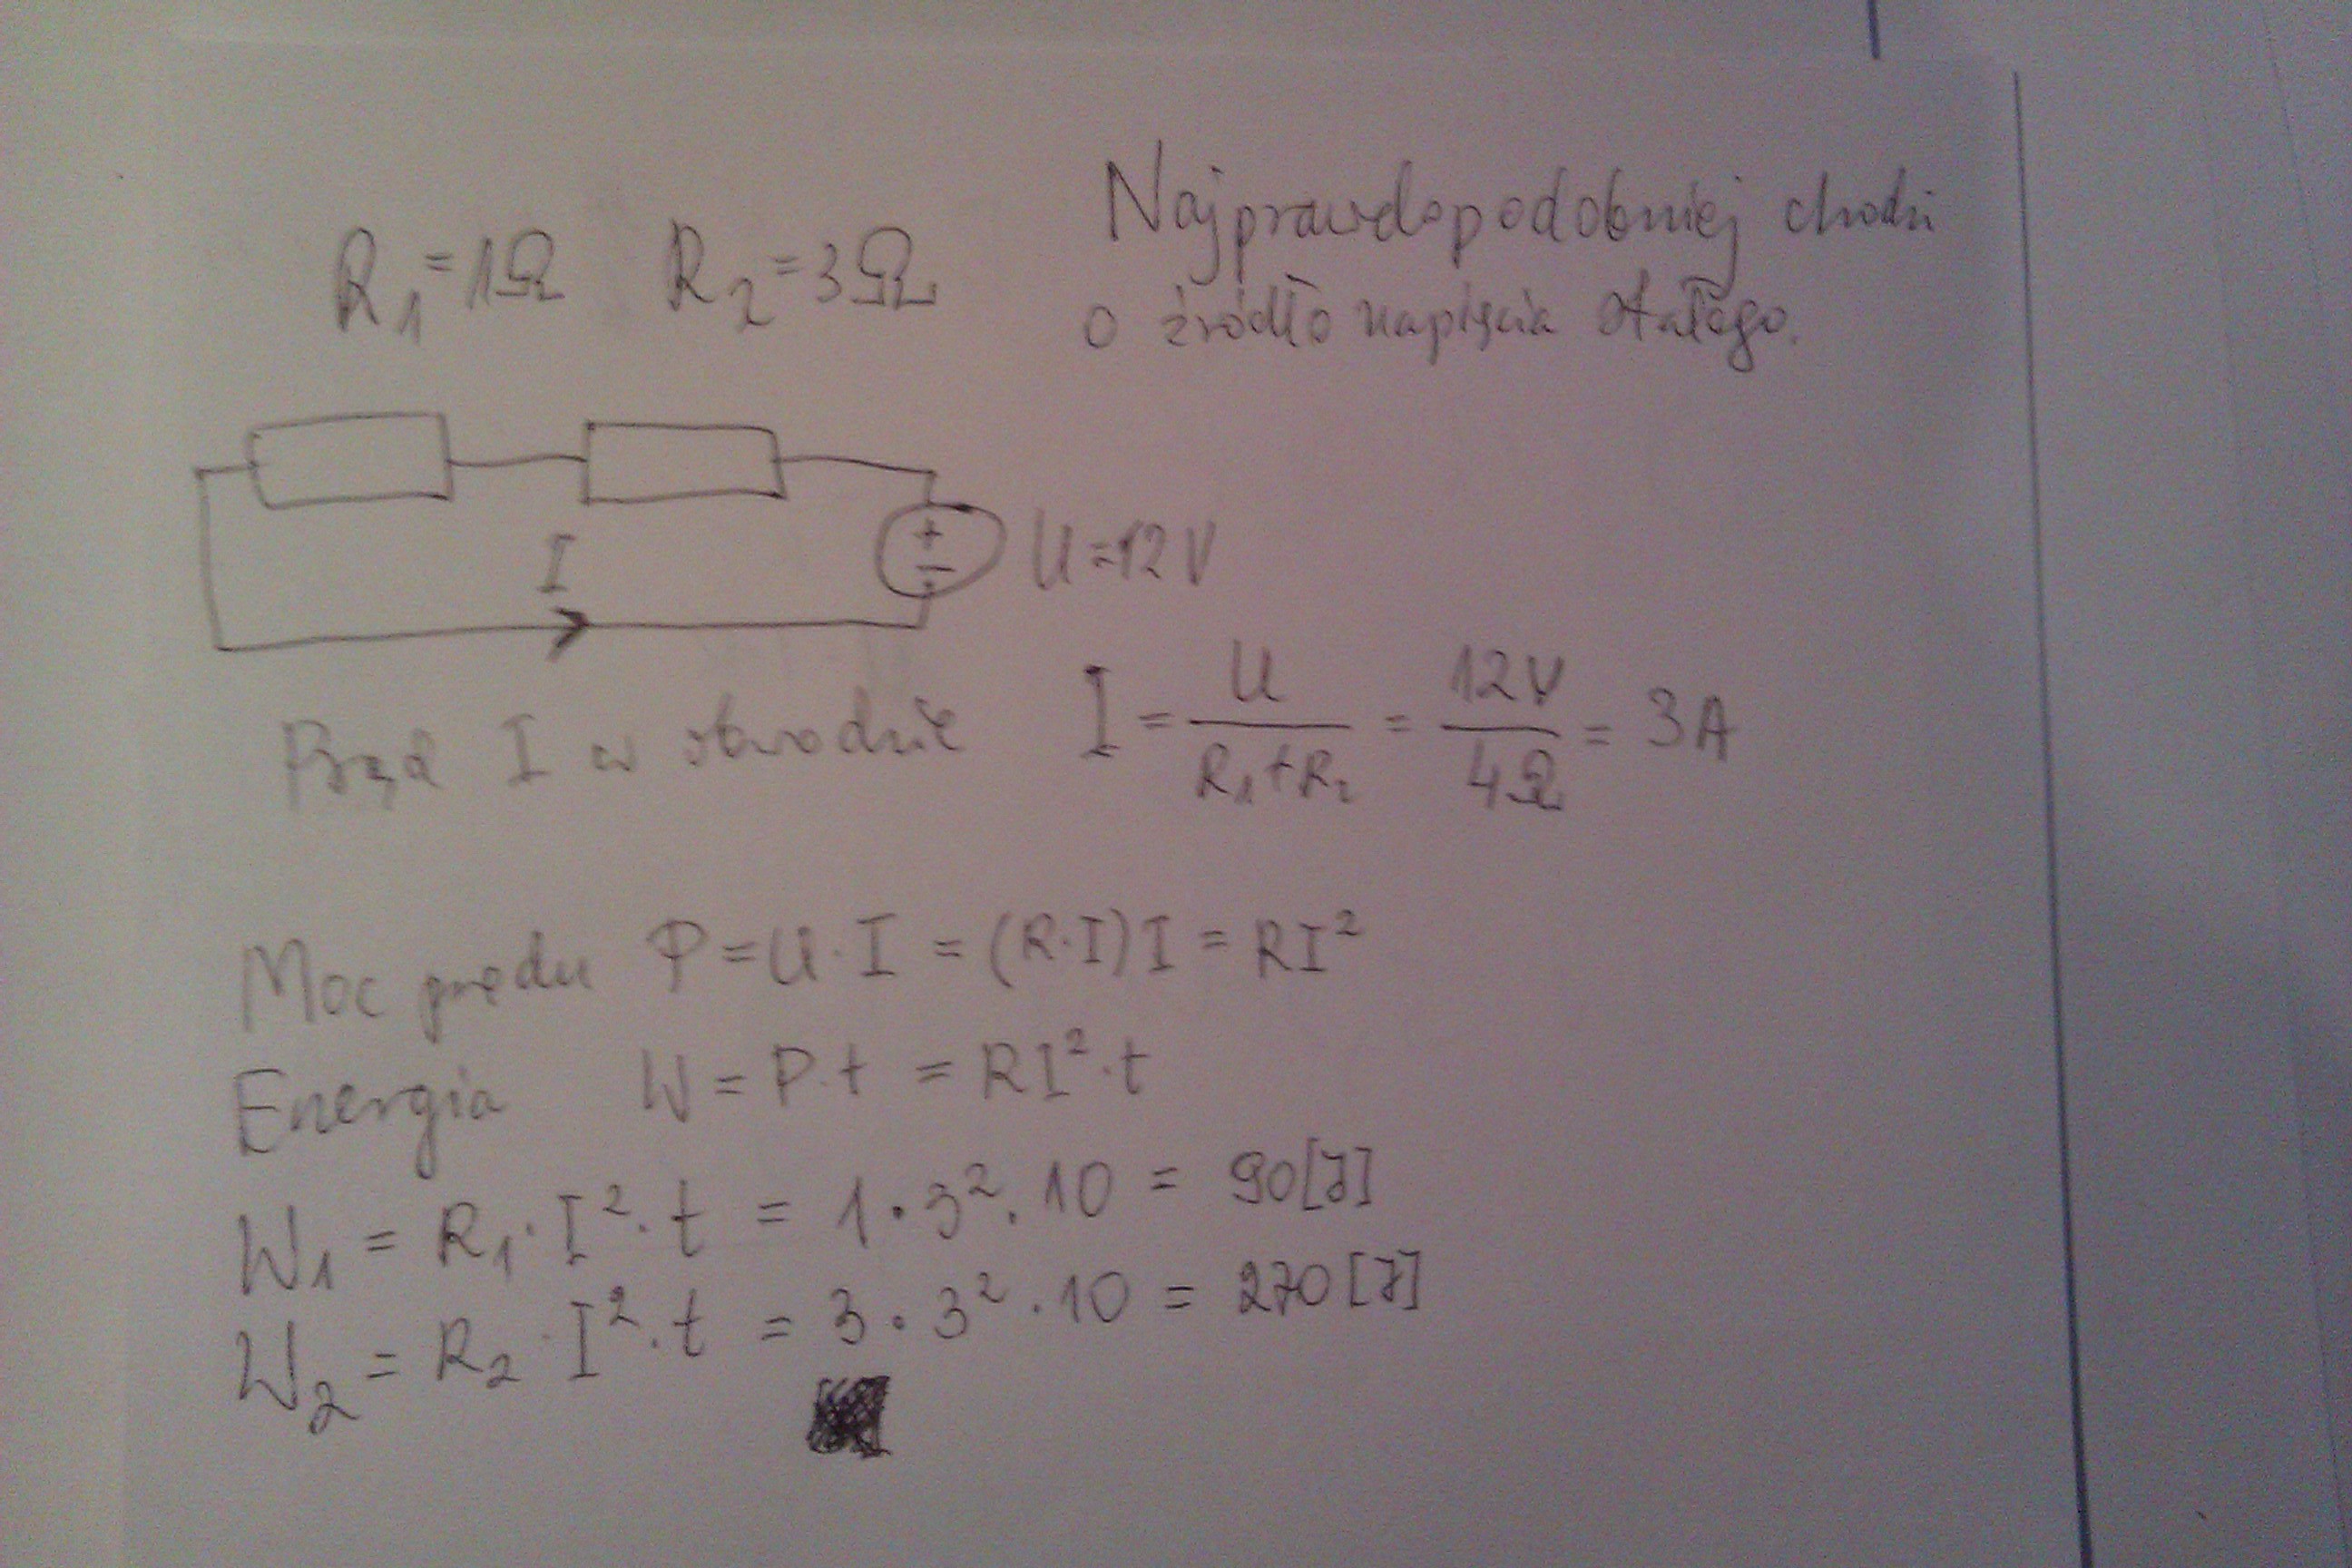 R₁=1Ω R₂=3Ω
Najprawdopodobniej chodzi
o źródło napięcia stałego.
+
−
U=12V
I
Prąd I w obwodzie I = U/(R₁+R₂) = 12V/4Ω = 3A
Moc prądu P=U·I = (R·I)I = RI²
Energia W = P·t = RI²·t
W₁ = R₁·I²·t = 1·3²·10 = 90[J]
W₂ = R₂·I²·t = 3·3²·10 = 270[J]